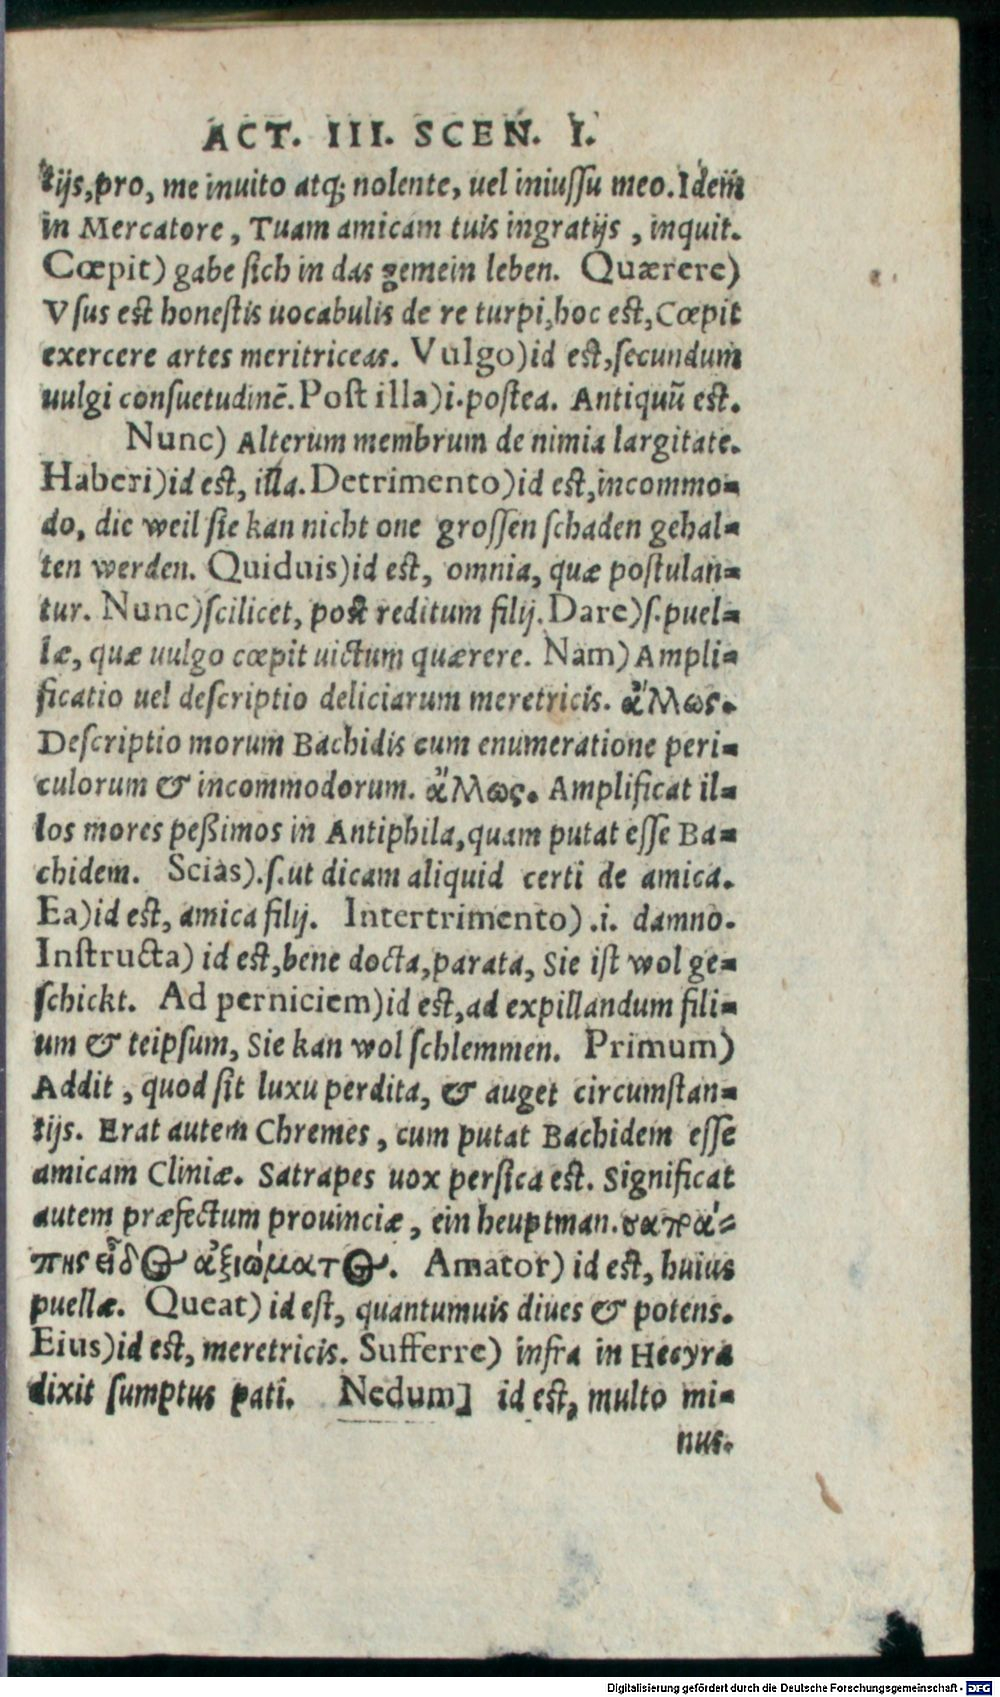 ACT. III. SCEN. I.
tijs, pro, me inuito atq; nolente, uel iniussu meo. Idem
in Mercatore, Tuam amicam tuis ingratijs, inquit.
Cœpit) gabe sich in das gemein leben. Quærere)
Vsus est honestis uocabulis de re turpi, hoc est, Cœpit
exercere artes meritriceas. Vulgo) id est, secundum
uulgi consuetudinē. Post illa) i. postea. Antiquū est.
Nunc) Alterum membrum de nimia largitate.
Haberi) id est, illa. Detrimento) id est, incommo=
do, die weil sie kan nicht one grossen schaden gehal=
ten werden. Quiduis) id est, omnia, quæ postulan=
tur. Nunc) scilicet, post reditum filij. Dare) s. puel=
læ, quæ uulgo cœpit uictum quærere. Nam) Ampli=
ficatio uel descriptio deliciarum meretricis. ἄλλως.
Descriptio morum Bachidis cum enumeratione peri=
culorum & incommodorum. ἄλλως. Amplificat il=
los mores peßimos in Antiphila, quam putat esse Ba=
chidem. Scias). s. ut dicam aliquid certi de amica.
Ea) id est, amica filij. Intertrimento) .i. damno.
Instructa) id est, bene docta, parata, Sie ist wol ge=
schickt. Ad perniciem) id est, ad expillandum fili=
um & teipsum, Sie kan wol schlemmen. Primum)
Addit, quod sit luxu perdita, & auget circumstan=
tijs. Erat autem Chremes, cum putat Bachidem esse
amicam Cliniæ. Satrapes uox persica est. Significat
autem præfectum prouinciæ, ein heuptman. σατρά=
πης εἶδος ἀξιώματος. Amator) id est, huius
puellæ. Queat) id est, quantumuis diues & potens.
Eius) id est, meretricis. Sufferre) infra in Hecyra
dixit sumptus pati. Nedum] id est, multo mi=
nus.
Digitalisierung gefördert durch die Deutsche Forschungsgemeinschaft - DFG